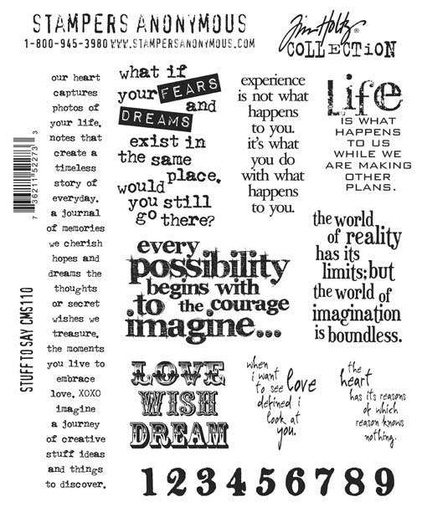 STAMPERS ANONYMOUS
1-800-945-3980 WWW.STAMPERSANONYMOUS.COM
Tim Holtz
COLLECTION
our heart
captures
photos of
your life.
notes that
create a
timeless
story of
everyday.
a journal
of memories
we cherish
hopes and
dreams the
thoughts
or secret
wishes we
treasure.
the moments
you live to
embrace
love. XOXO
imagine
a journey
of creative
stuff ideas
and things
to discover.
7 36211 52273 3
STUFF TO SAY CMS110
what if
your FEARS
and
DREAMS
exist in
the same
place.
would
you still
go there?
experience
is not what
happens
to you.
it's what
you do
with what
happens
to you.
Life
IS WHAT
HAPPENS
TO US
WHILE WE
ARE MAKING
OTHER
PLANS.
every
possibility
begins with
to the courage
imagine...
the world
of reality
has its
limits; but
the world of
imagination
is boundless.
LOVE
WISH
DREAM
when
i want
to see love
defined i
look at
you.
the
heart
has its reasons
of which
reason knows
nothing.
1 2 3 4 5 6 7 8 9